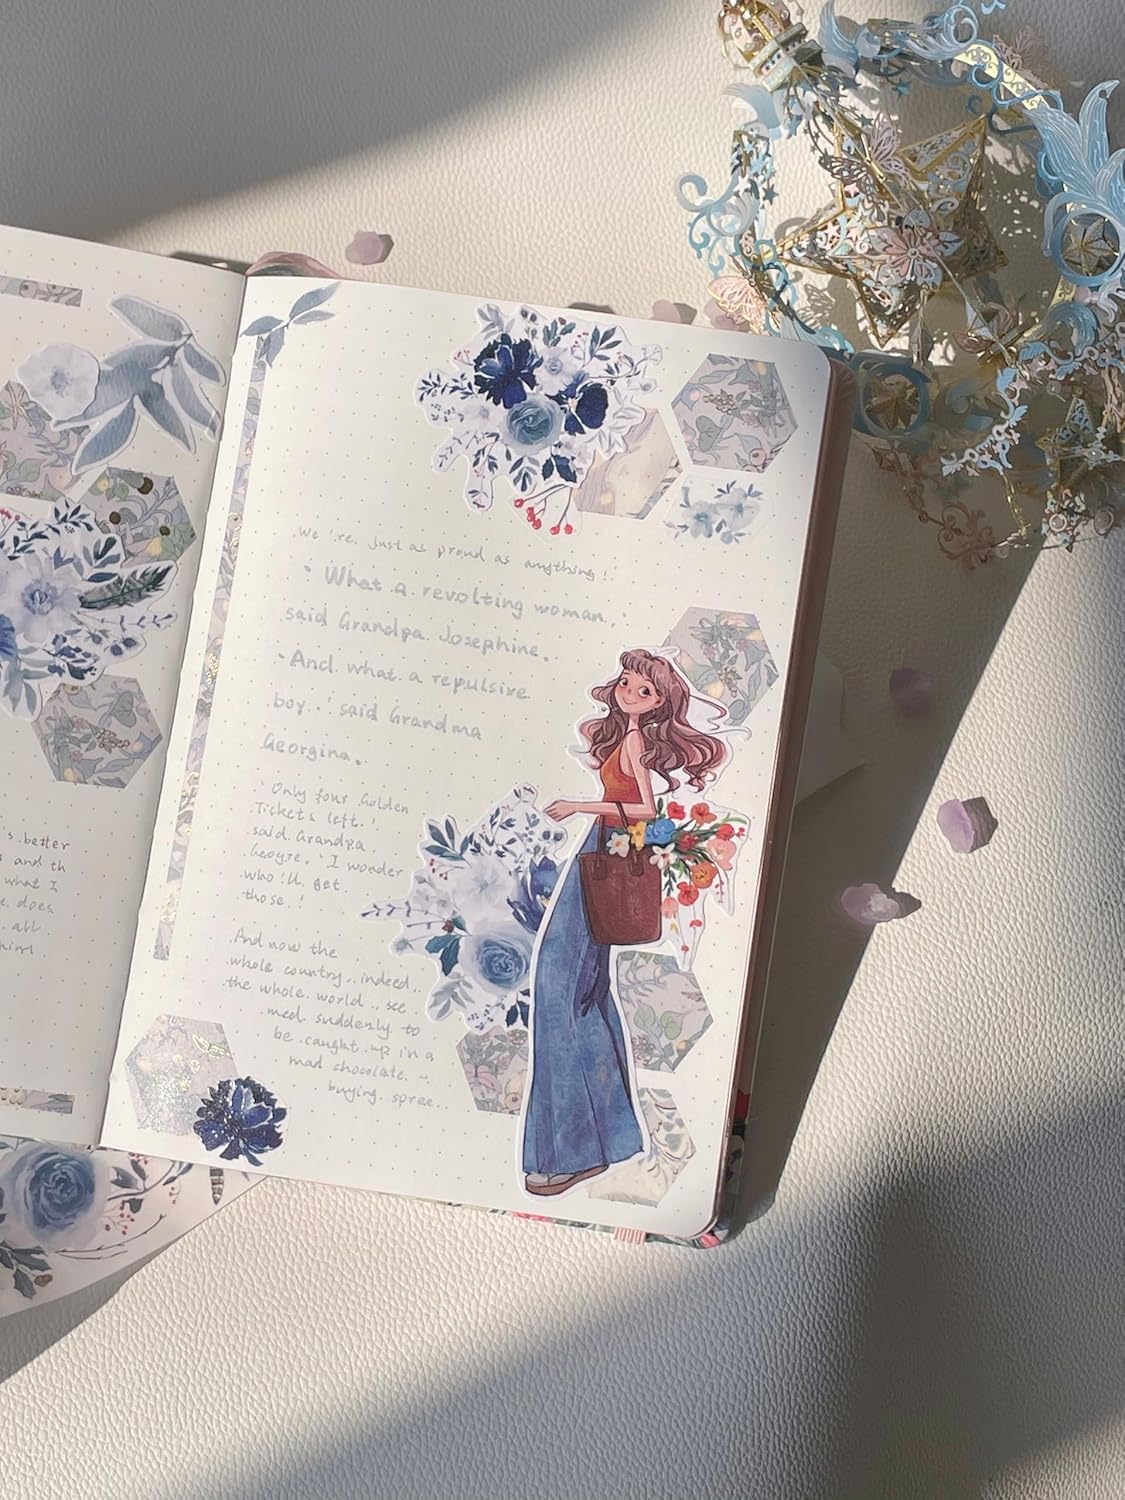 s better
s and th
what I
e. does.
all
him
We 're. just as proud as anything!.
" What a revolting woman,.
said Grandpa. Josephine.
"And. what. a repulsive
boy..' said Grandma
Georgina.
' Only four Golden
Tickets left.'
said. Grandpa
Geogre. ' I wonder
who 'll get.
those.!
And now the
whole country.. indeed..
the whole. world.. see
med. suddenly. to
be. caught. up in a
mad chocolate. -.
buying. spree..